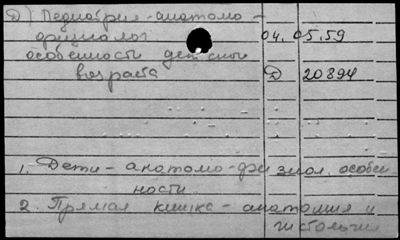 Д) Педиатрия - анатомо -
физиолог 04.05.59
особенности детского
возраста Д 20894
1. Дети - анатомо-физиол. особен-
ности.
2. Прямая кишка - анатомия и
гистология